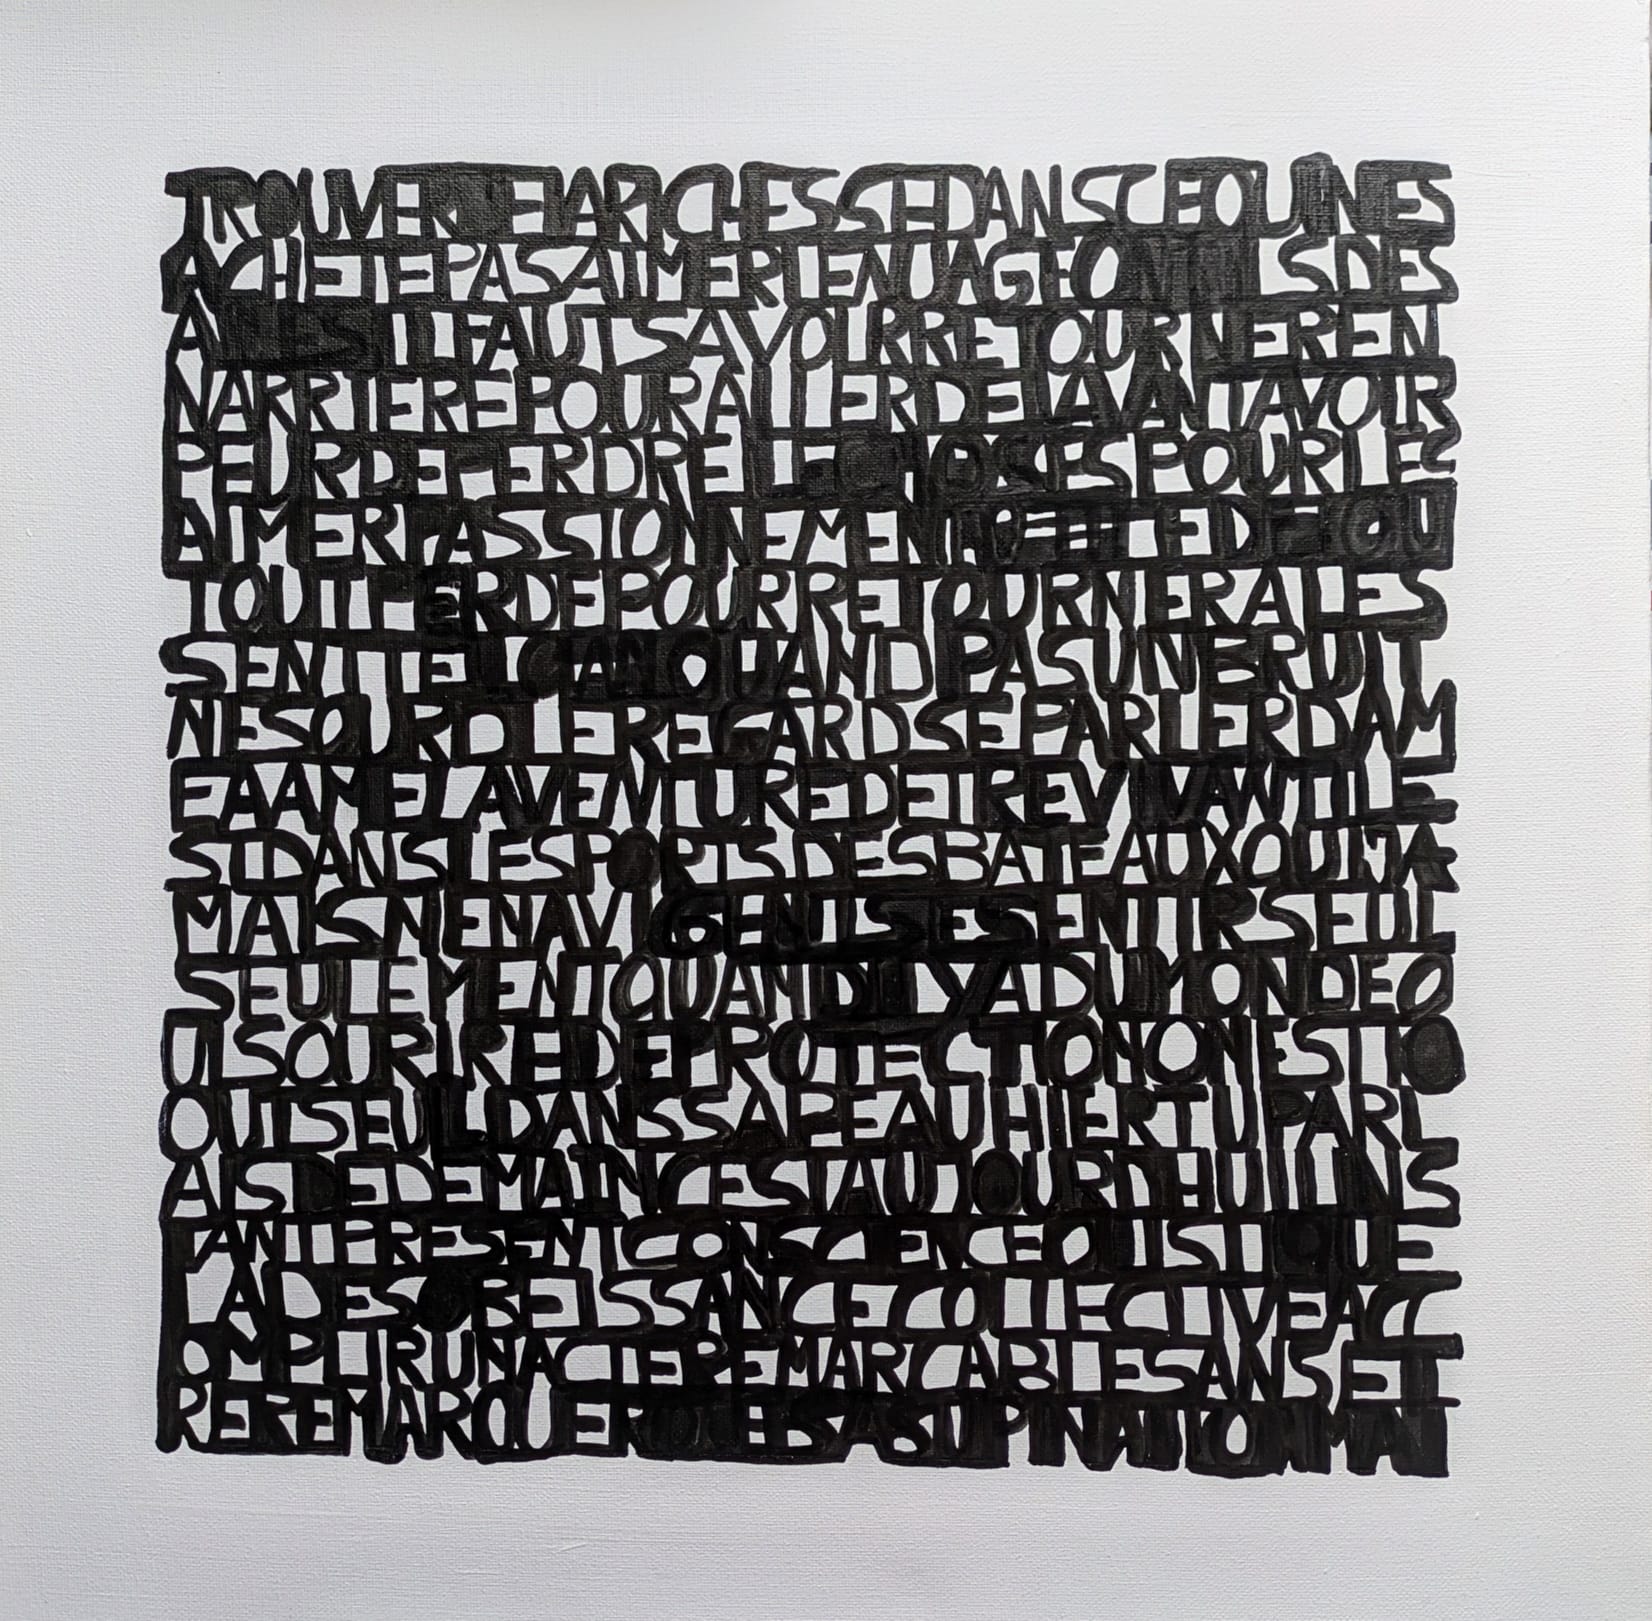 TROUVERDELARICHESSEDANSCEQUINES
ACHETEPASAIMERLENUAGEONT ILSDES
A ILFAUTSAVOIRRETOURNEREN
NARRIEREPOURALLERDELAVANTAVOIR
PEURDEPERDRELECHOSESPOURLES
AIMERPASSIONNEMENT
TOUTPERDEPOURRETOURNERALES
SENTIEL QUANDPASUNBRUIT
NESOURDLEREGARDSEPARLERDAM
EAAMELAVENTUREDETREVIVANTILE
STDANSLESPORTSDESBATEAUXQUIJA
MAISNENAVIGENTSESENTIRSEUL
SEULEMENTQUANDILYADUMONDEO
UISOURIREDEPROTECTIONONESTTO
OUTSEULDANSSAPEAUHIERTUPARL
AISDEDEMAINCESTAUJOURDHUILINS
TANTPRESENTCONSCIENCEOLISTIQUE
LADESOBEISSANCECOLLECTIVEACC
OMPLIRUNACTEREMARCABLESANSET
REREMARQUER